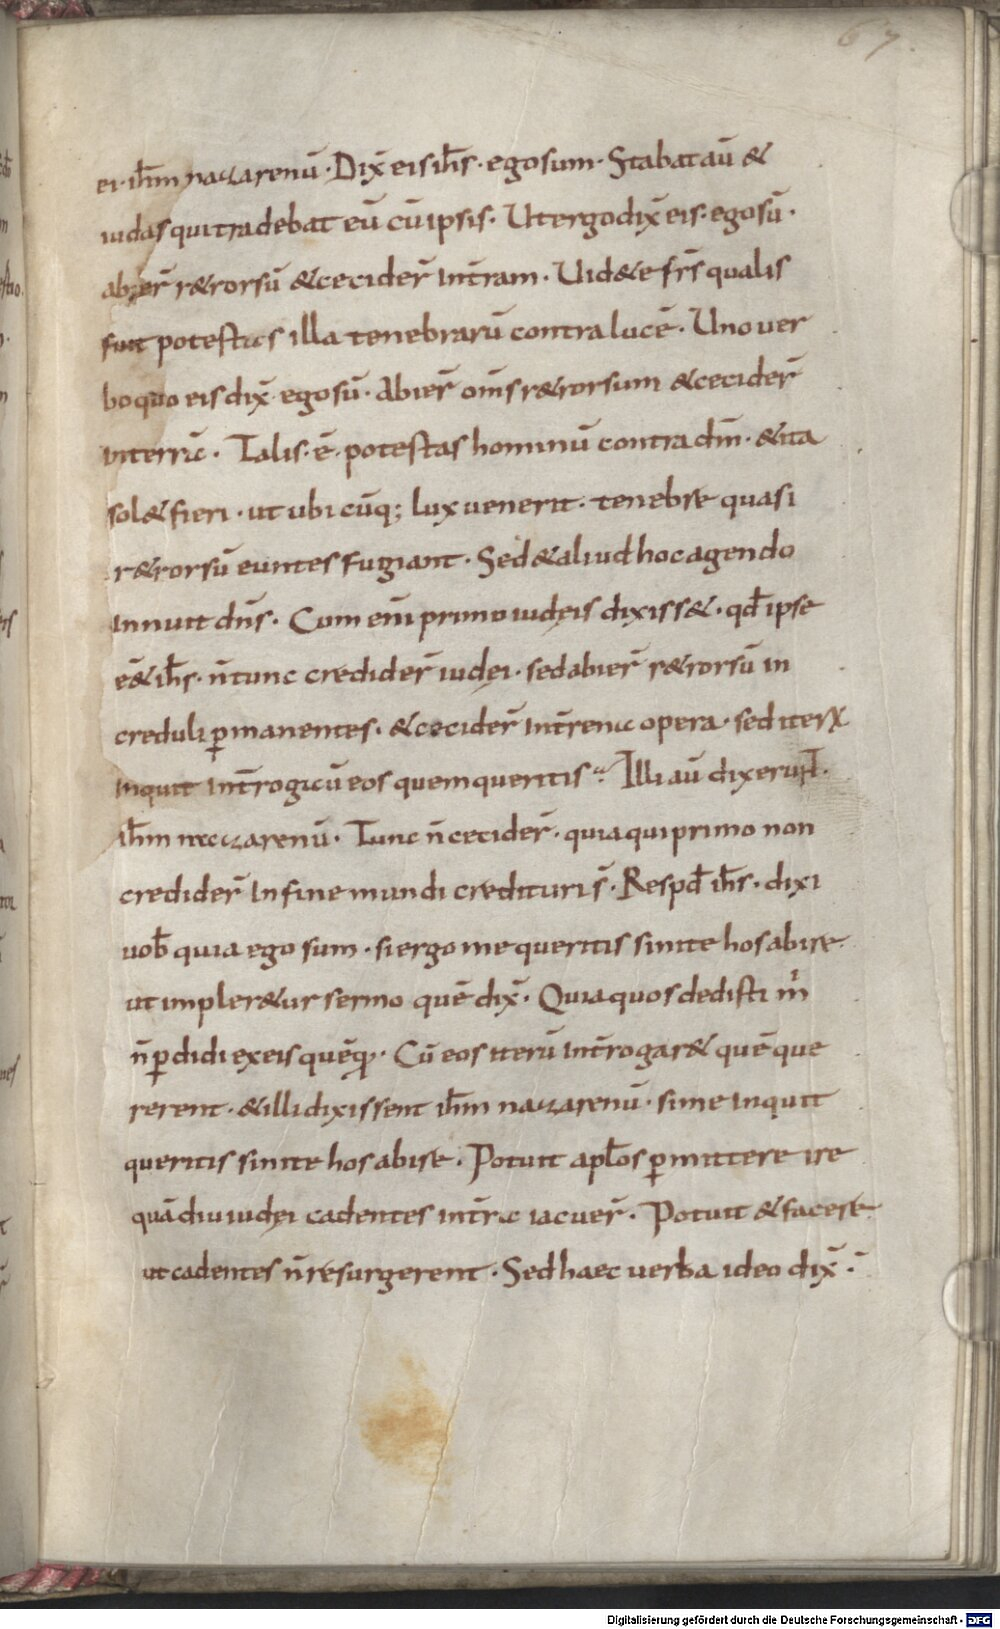 67.
ei· ihm̄ nazarenū· Dix̄ eis ihs̄· ego sum· Stabat aū &
iudas qui tradebat eū cū ipsis· Ut ergo dix̄ eis· ego sū·
abier̄ r&rorsū & cecider̄ in tr̄am· Uid&e fr̄s qualis
fuit potestas illa tenebrarū contra lucē· Uno uer
bo quo eis dix̄ ego sū· abier̄ om̄s r&rorsum & cecider̄
in terra· Talis· ē· potestas hominū contra dm̄· & ita
sol& fieri· ut ubicūq; lux uenerit· tenebrę quasi
r&rorsū euntes fugiant· Sed & aliud hoc agendo
innuit dn̄s· Cum eni primo iudęis dixiss&· qđ ipse
ē& ihs̄· n̄ tunc credider̄ iudęi· sed abier̄ r&rorsū in
creduli ꝑmanentes· & cecider̄ in tr̄ena opera· sed iterꝝ
inquit intr̄ogat cū eos quem queritis· Illi aū dixerunt·
ihm̄ nazarenū· Tunc n̄ cecider̄· quia qui primo non
credider̄ in fine mundi credituri s̄· Respđ ihs̄· dixi
uob̄ quia ego sum· si ergo me queritis sinite hos abire·
ut impler&ur sermo quē dix̄· Quia quos dedisti m̄
n̄ ꝑdidi ex eis quēq̄· Cū eos iterū intr̄ogar& quē que
rerent· & illi dixissent ihm̄ nazarenū· si me inquit
queritis sinite hos abire· Potuit apl̄os ꝑmittere ire
quādiu iudęi cadentes in tr̄a iacuer̄· Potuit & facere
ut cadentes n̄ resurgerent· Sed haec uerba ideo dix̄·
Digitalisierung gefördert durch die Deutsche Forschungsgemeinschaft - DFG